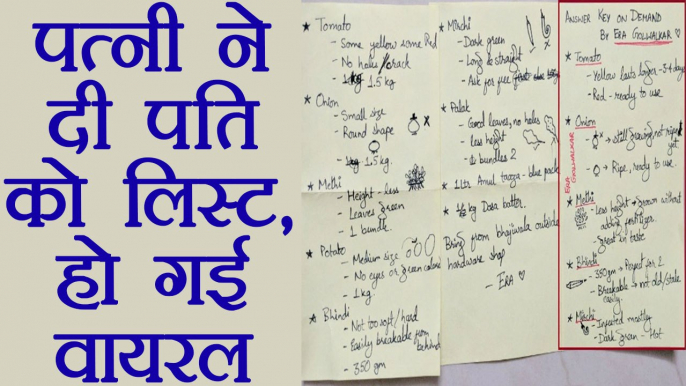 पत्नी ने
दी पति
को लिस्ट,
हो गई
वायरल
★ Tomato
- Some yellow some Red
- No holes/crack
- 1kg 1.5 kg
★ Onion
- Small size
- Round shape
- 1kg 1.5 kg.
★ Methi
- Height - less
- Leaves green
- 1 bundle.
★ Potato
- Medium size
- No eyes or green colored
- 1 kg
★ Bhindi
- Not too soft/hard
- Easily breakable from behind
- 350 gm
★ Mirchi
- Dark green
- Long & straight
- Ask for free
★ Palak
- Good leaves, no holes
- less height
- bundles 2
★ 1 ltr Amul taaza - blue pack
★ kg Dosa batter.
Bring from bhajiwala outside
hardware shop
- ERA
ANSWER KEY ON DEMAND
BY ERA GOLWALKAR
★ Tomato
- Yellow lasts longer - 3-4 days
- Red - ready to use
★ Onion
- still growing not ripe
yet
- Ripe, ready to use.
ERA GOLWALKAR
★ Methi
- Less height → grown without
adding fertilizer.
- Great in taste
★ Bhindi
- 350gm → Perfect for 2
- Breakable → not old/stale
easily.
★ Mirchi
- Injured mostly
- Dark green - Hot